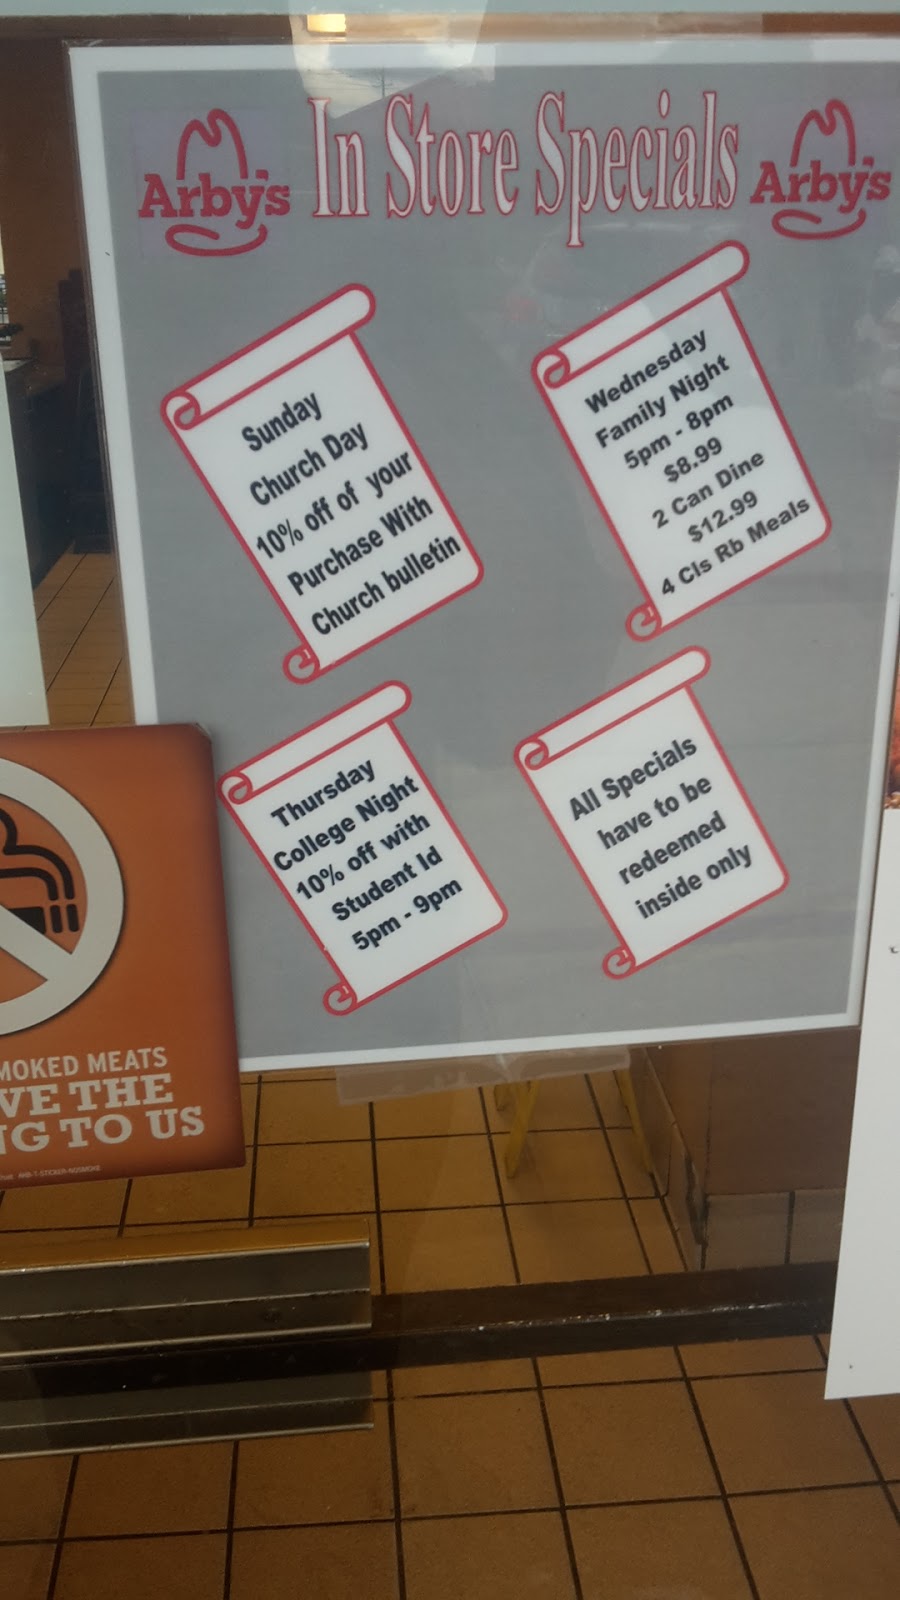 Arby's
In Store Specials
Arby's
Sunday
Church Day
10% off of your
Purchase With
Church bulletin
Wednesday
Family Night
5pm - 8pm
$8.99
2 Can Dine
$12.99
4 Cls Rb Meals
Thursday
College Night
10% off with
Student Id
5pm - 9pm
All Specials
have to be
redeemed
inside only
MOKED MEATS
VE THE
NG TO US
ARB-1-STICKER-NOSMOKE